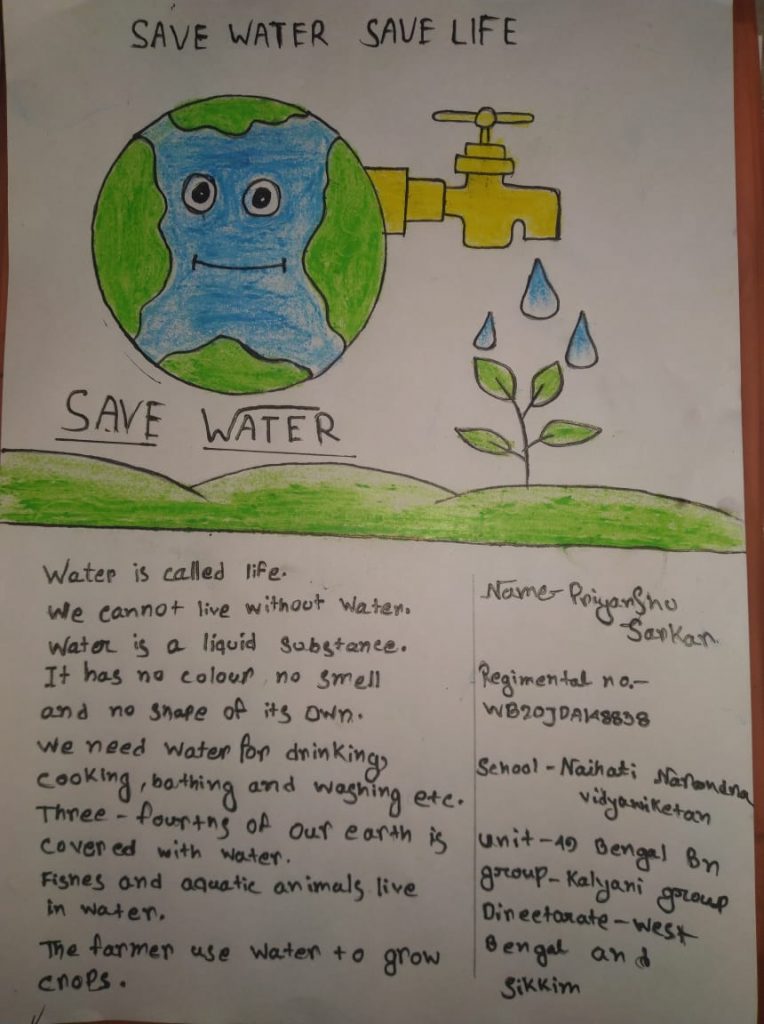 SAVE WATER SAVE LIFE
SAVE WATER
Water is called life.
We cannot live without water.
Water is a liquid substance.
It has no colour, no smell
and no shape of its own.
We need water for drinking,
cooking, bathing and washing etc.
Three-fourths of our earth is
covered with water.
Fishes and aquatic animals live
in water.
The farmer use water to grow
crops.
Name- Priyanshu
Sarkar
Regimental no.-
WB20JDA148838
School - Naihati Narendra
vidyaniketan
unit-49 Bengal Bn
group-Kalyani group
Directorate-West
Bengal and
Sikkim